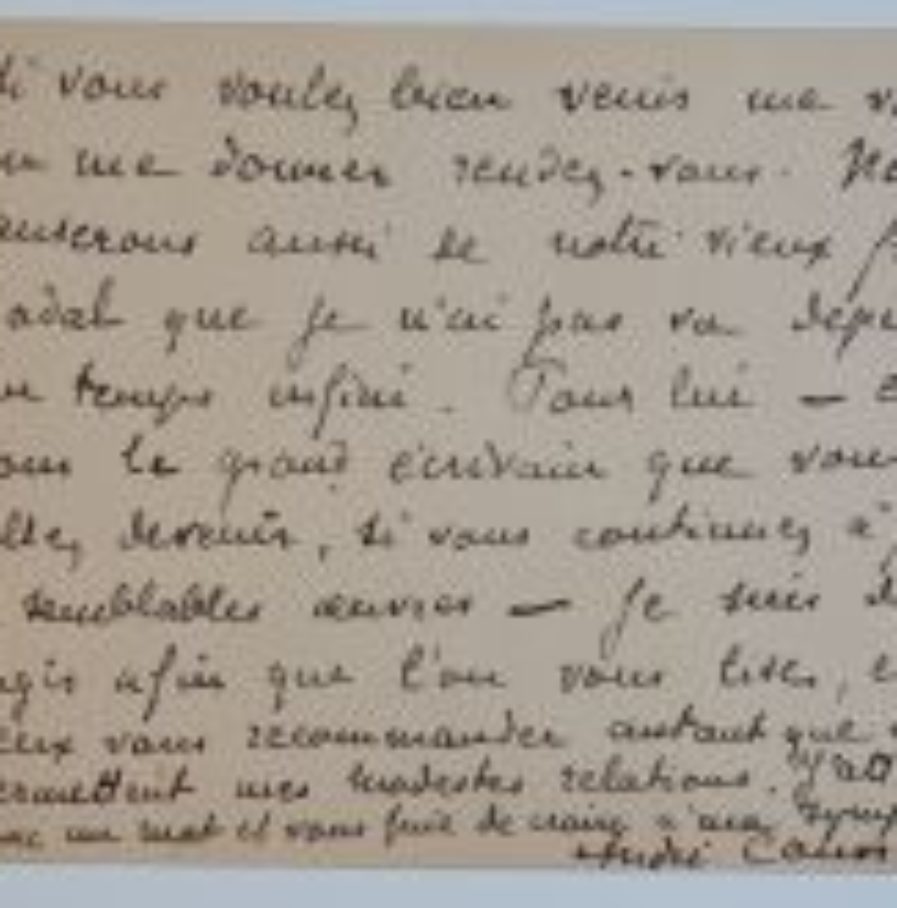 si vous voulez bien venir me
me donner rendez-vous.
causerons aussi de notre vieux
que je n'ai pas vu
temps infini. Pour lui —
le grand écrivain que vous
allez devenir, si vous continuez à
semblables œuvres — je suis
agir afin que l'on vous lise,
vous recommander autant que
permettent mes modestes relations.
un mot et vous prie de croire à
André